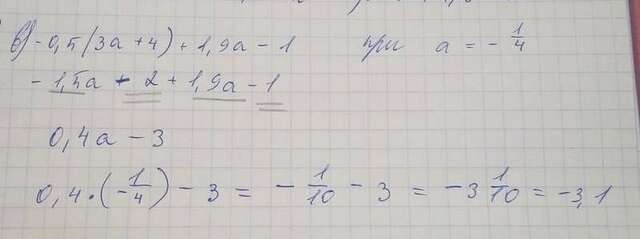 в) -0,5(3a + 4) + 1,9a - 1 при a = -1/4
-1,5a - 2 + 1,9a - 1
0,4a - 3
0,4·(-1/4) - 3 = -1/10 - 3 = -3 1/10 = -3,1